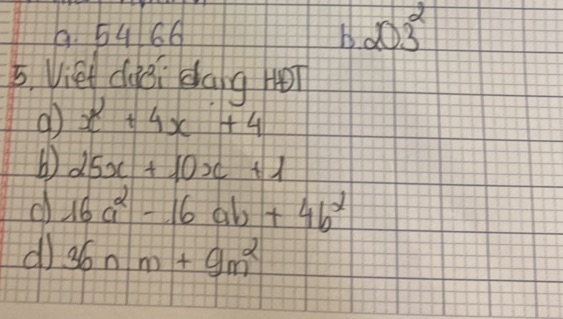 a. 54.66 b. 203²
5. Viết dưới dạng HĐT
a) x² + 4x + 4
b) 25x + 10x + 1
c) 16a² - 16 ab + 4b²
d) 36 n m + 9m²